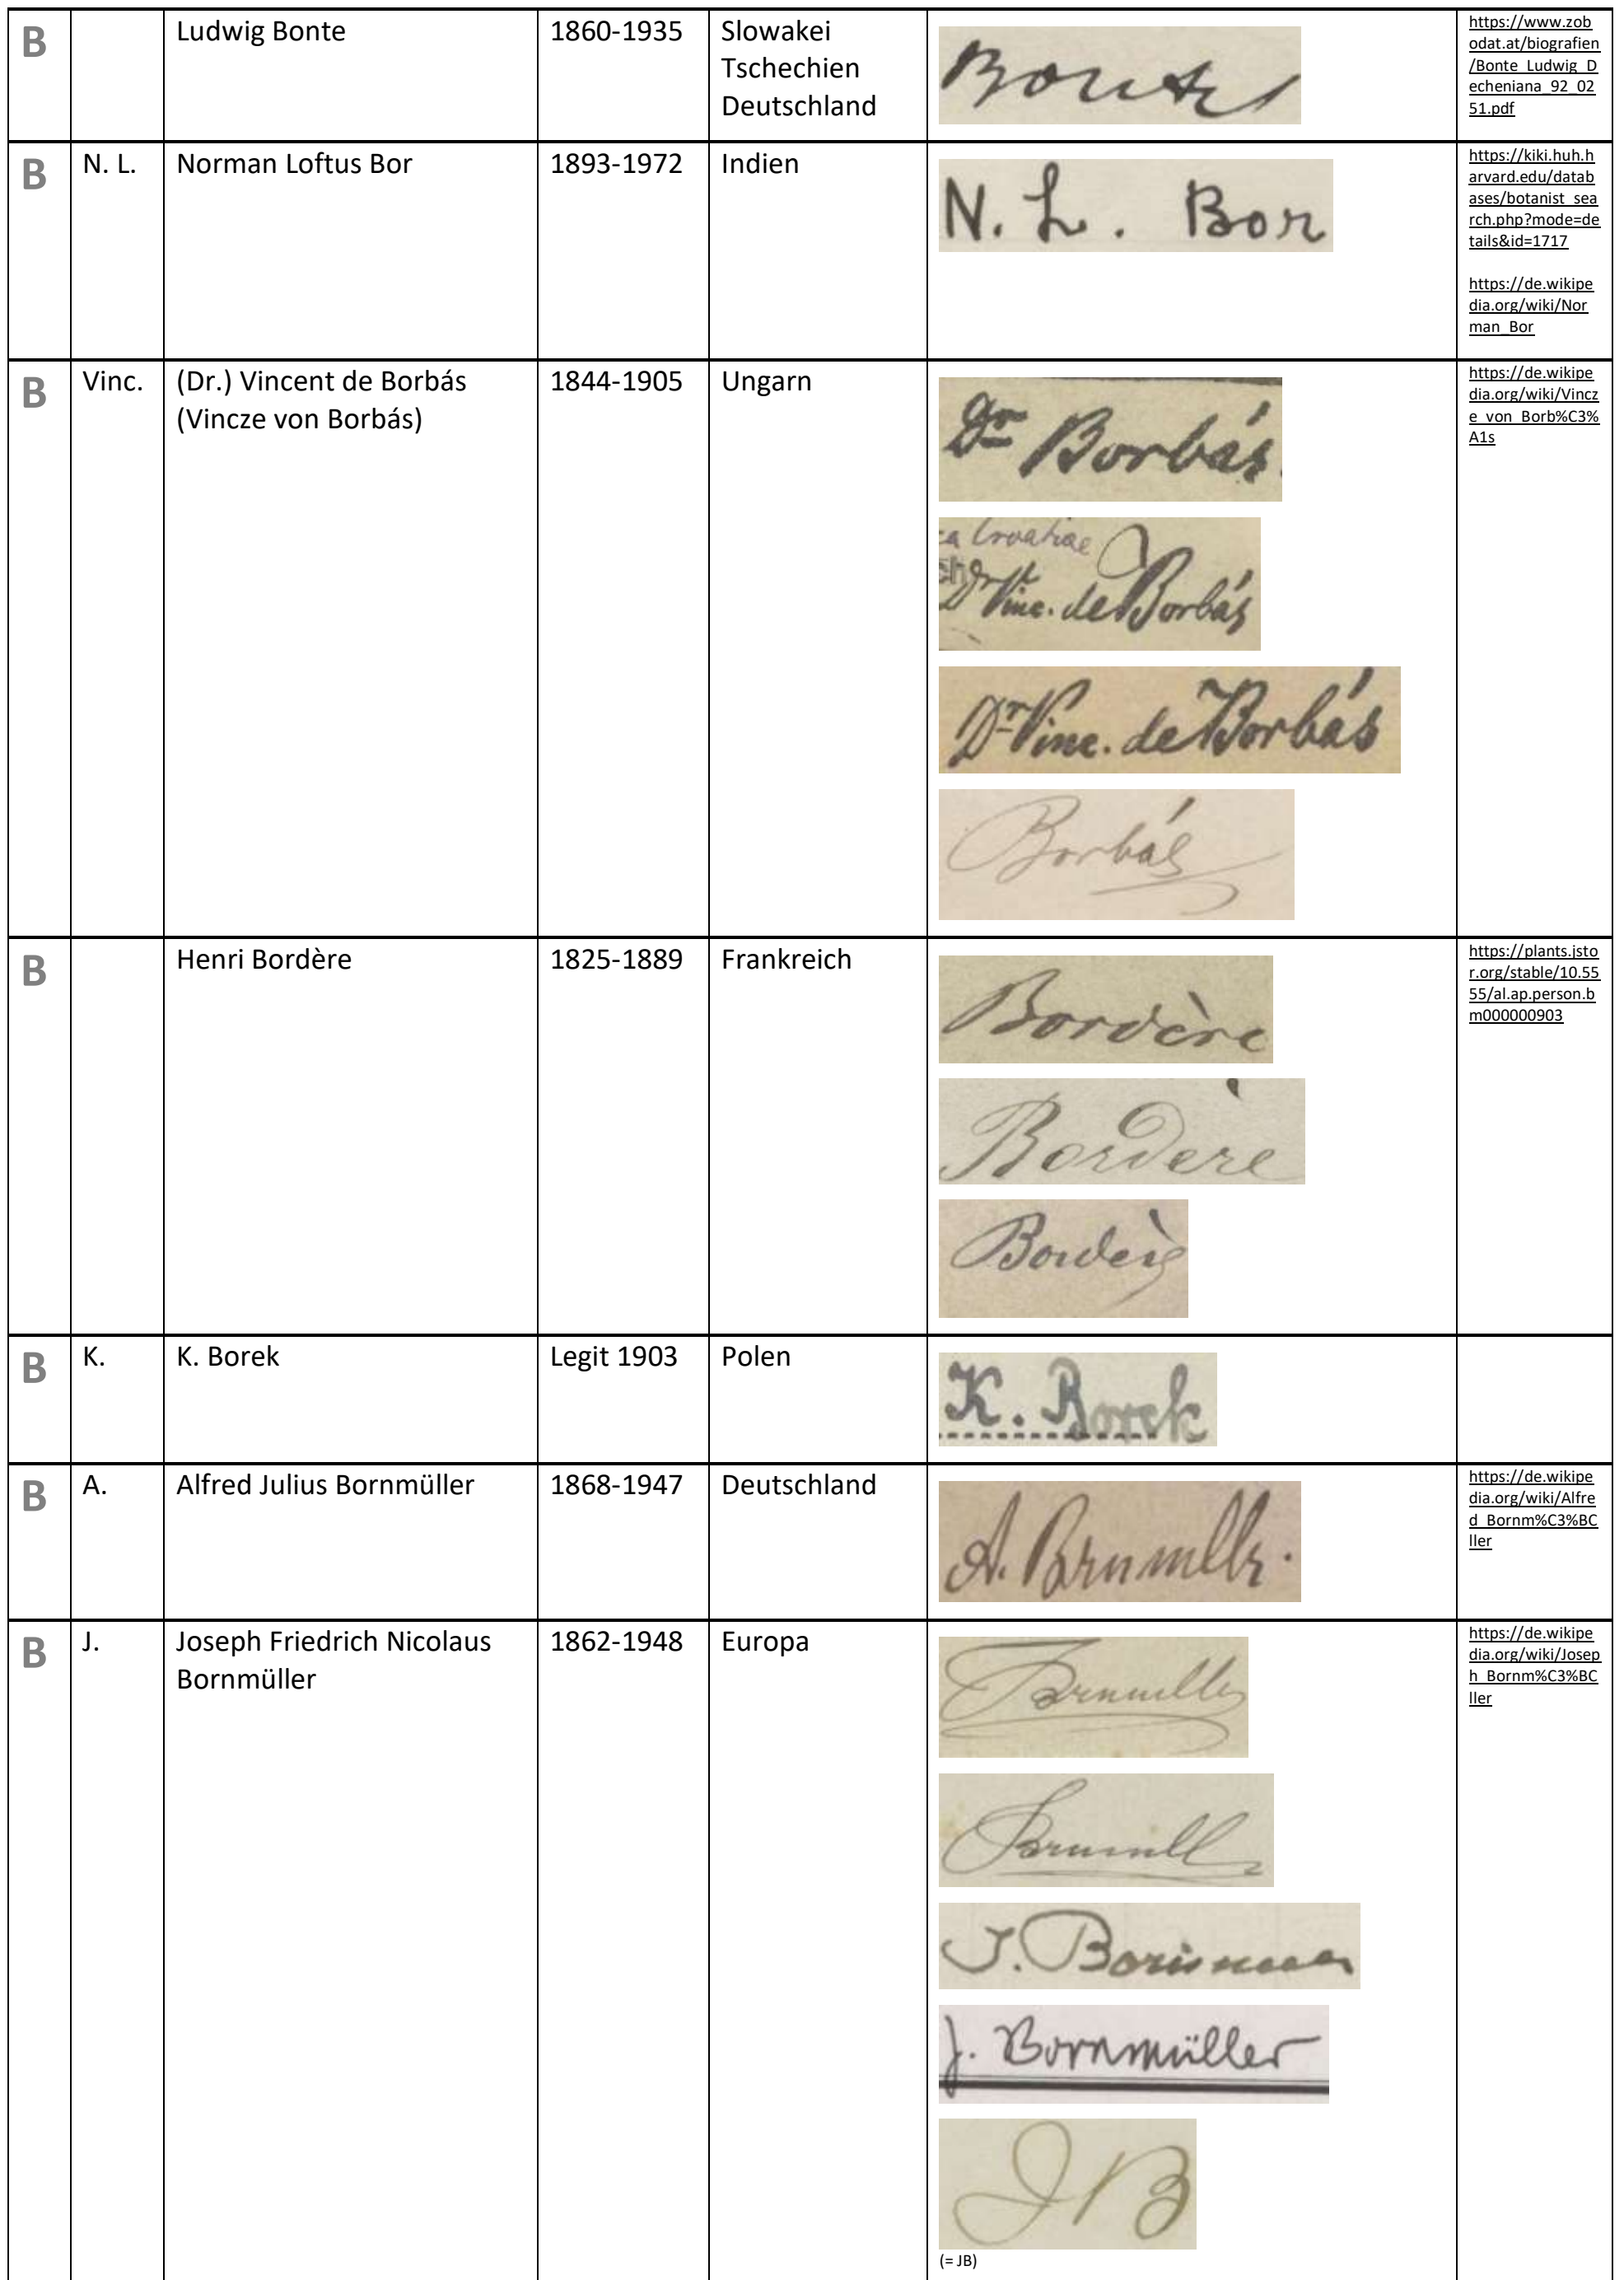 B Ludwig Bonte 1860-1935 Slowakei
Tschechien
Deutschland
Bonte
https://www.zob
odat.at/biografien
/Bonte_Ludwig_D
echeniana_92_02
51.pdf
B N. L. Norman Loftus Bor 1893-1972 Indien
N. L. Bor
https://kiki.huh.h
arvard.edu/datab
ases/botanist_sea
rch.php?mode=de
tails&id=1717
https://de.wikipe
dia.org/wiki/Nor
man_Bor
B Vinc. (Dr.) Vincent de Borbás 1844-1905 Ungarn
(Vincze von Borbás)
Dr Borbás
ca Croatiae
Dr Vinc. de Borbás
Dr Vinc. de Borbás
Borbás
https://de.wikipe
dia.org/wiki/Vincz
e_von_Borb%C3%
A1s
B Henri Bordère 1825-1889 Frankreich
Bordère
Bordère
Bordère
https://plants.jsto
r.org/stable/10.55
55/al.ap.person.b
m000000903
B K. K. Borek Legit 1903 Polen
K. Borek
B A. Alfred Julius Bornmüller 1868-1947 Deutschland
A. Brnmllr.
https://de.wikipe
dia.org/wiki/Alfre
d_Bornm%C3%BC
ller
B J. Joseph Friedrich Nicolaus 1862-1948 Europa
Bornmüller
J. Bornmüller
JB
(= JB)
https://de.wikipe
dia.org/wiki/Josep
h_Bornm%C3%BC
ller